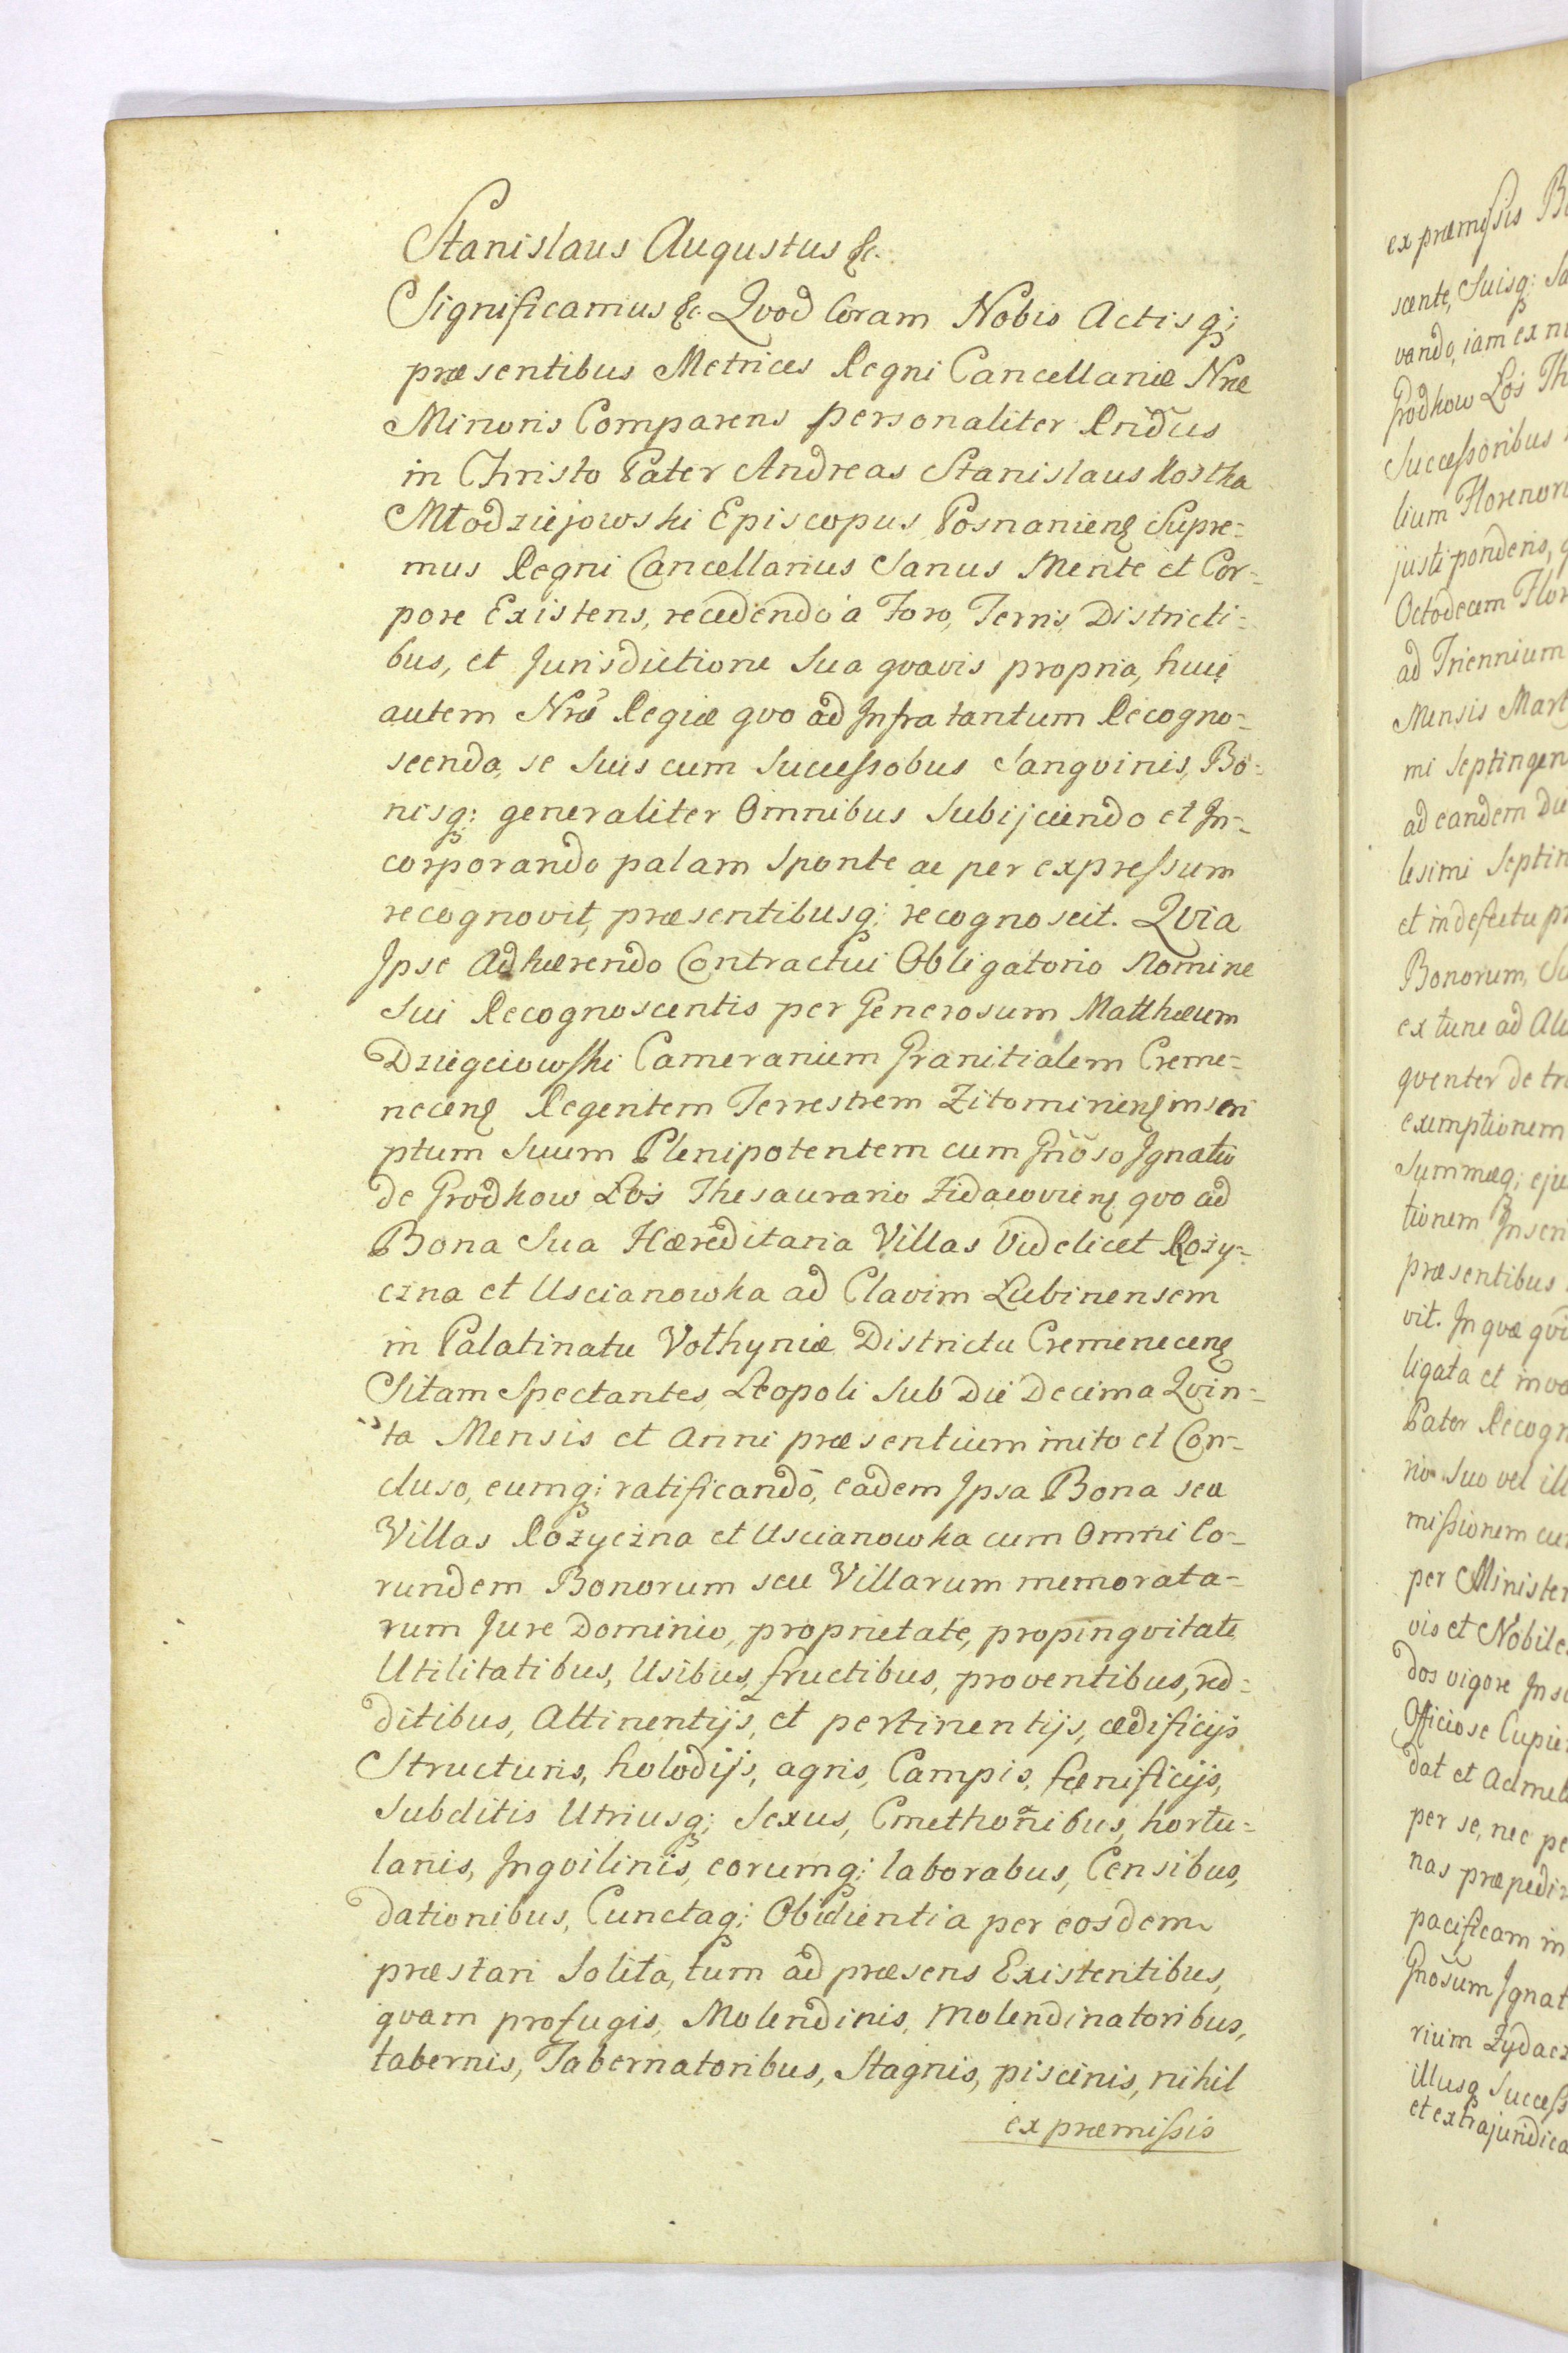 Stanislaus Augustus &c.
Significamus &c. Qvod Coram Nobis Actisq;
præsentibus Metrices Regni Cancellariæ Nræ
Minoris Comparens personaliter Rndus
in Christo Pater Andreas Stanislaus Kostka
Młodziejowski Episcopus Posnaniens Supre=
mus Regni Cancellarius Sanus Mente et Cor=
pore Existens, recedendo a Foro, Terris Districti=
bus, et Jurisdictione Sua qvavis propria, huic
autem Nræ Regiæ qvo ad Infra tantum Recogno=
scenda, se Suis cum Successobus Sangvinis, Bo=
nisq; generaliter Omnibus Subijciendo et In=
corporando palam Sponte ac per expressum
recognovit, præsentibusq; recognoscit. Qvia
Ipse Adhærendo Contractui Obligatorio Nomine
Sui Recognoscentis per Generosum Matthæum
Dzięgciowski Camerarium Granitialem Creme=
necens Regentem Terrestrem Zitomiriens inscri
ptum Suum Plenipotentem cum Gnoso Ignatio
de Grodkow Łoś Thesaurario Zidacoviens qvo ad
Bona Sua Hæreditaria Villas Videlicet Rozy=
czna et Uscianowka ad Clavim Lubinensem
in Palatinatu Volhyniæ Districtu Cremenecens
Sitam Spectantes Leopoli Sub Die Decima Qvin=
ta Mensis et Anni præsentium inito et Con=
cluso, eumq; ratificando, eadem Ipsa Bona seu
Villas Rozyczna et Uscianowka cum Omni Eo=
rundem Bonorum seu Villarum memorata=
rum Jure Dominio, proprietate, propinqvitate
Utilitatibus, Usibus, fructibus, proventibus, red=
ditibus, Attinentijs, et pertinentijs, ædificijs
Structuris, folodijs, agris, Campis, fænificijs,
Subditis Utriusq; Sexus, Cmethonibus, hortu=
lanis, Inqvilinis, eorumq; laborabus, Censibus,
dationibus, Cunctaq; Obedientia per eosdem
præstari Solita, tum ad præsens Existentibus,
qvam profugis, Molendinis, Molendinatoribus,
tabernis, Tabernatoribus, Stagnis, piscinis, nihil
ex præmissis
ex præmissis
scente, Suisq;
vando, iam ex
Grodkow Łoś
Successoribus
lium Florenor
justi ponderis,
Octodecem
ad Triennium
Mensis
mi Septingen
ad eandem
lesimi
et in defectu
Bonorum,
ex tunc ad
qventer de
exemptionem
Summæq;
tionem
præsentibus
vit. In qvæ
ligata et
Pater Recogn
rio Suo vel
missionem
per Minister
vis et Nobile
dos vigore
Officiose
dat et
per se, nec
nas præpedi
pacificam in
Gnosum Ignat
rium Zydacz
illusq Success
et extrajuridica